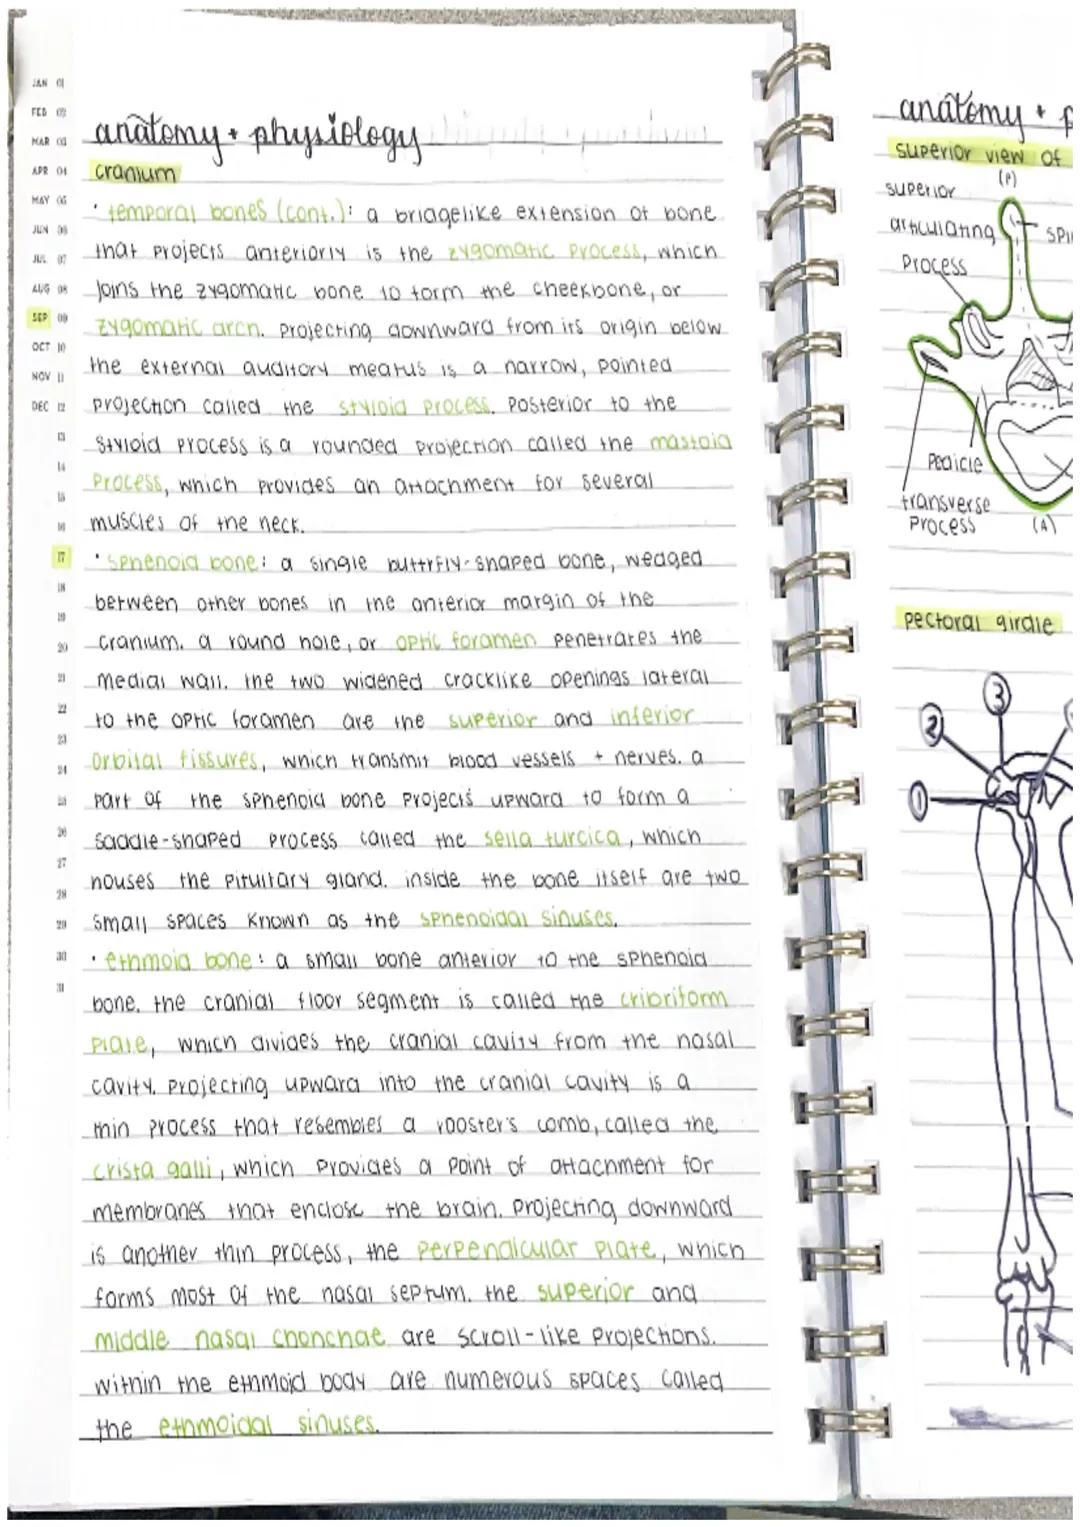 JAN 01
FEB 02
MAR 03
APR 04
MAY 05
JUN 06
JUL 07
AUG 08
SEP 09
OCT 10
NOV 11
DEC 12
13
14
15
16
17
18
19
20
21
22
23
24
25
26
27
28
29
30
31
anatomy + physiology
cranium
· temporal bones (cont.): a bridgelike extension of bone
that projects anteriorly is the zygomatic process, which
joins the zygomatic bone to form the cheekbone, or
zygomatic arch. projecting downward from its origin below
the external auditory meatus is a narrow, pointed
projection called the styloid process. posterior to the
styloid process is a rounded projection called the mastoid
process, which provides an attachment for several
muscles of the neck.
· sphenoid bone: a single buttrfly-shaped bone, wedged
between other bones in the anterior margin of the
cranium. a round hole, or optic foramen penetrates the
medial wall. the two widened cracklike openings lateral
to the optic foramen are the superior and inferior
orbital fissures, which transmit blood vessels + nerves. a
part of the sphenoid bone projects upward to form a
saddle-shaped process called the sella turcica, which
houses the pituitary gland. inside the bone itself are two
small spaces known as the sphenoidal sinuses.
· ethmoid bone: a small bone anterior to the sphenoid
bone. the cranial floor segment is called the cribriform
plate, which divides the cranial cavity from the nasal
cavity. projecting upward into the cranial cavity is a
thin process that resembles a rooster's comb, called the
crista galli, which provides a point of attachment for
membranes that enclose the brain. projecting downward
is another thin process, the perpendicular plate, which
forms most of the nasal septum. the superior and
middle nasal chonchae are scroll-like projections.
within the ethmoid body are numerous spaces called
the ethmoidal sinuses.
anatomy + p
superior view of
(P)
superior
articulating
process
spi
pedicle
transverse
process
(A)
pectoral girdle
3
2
1